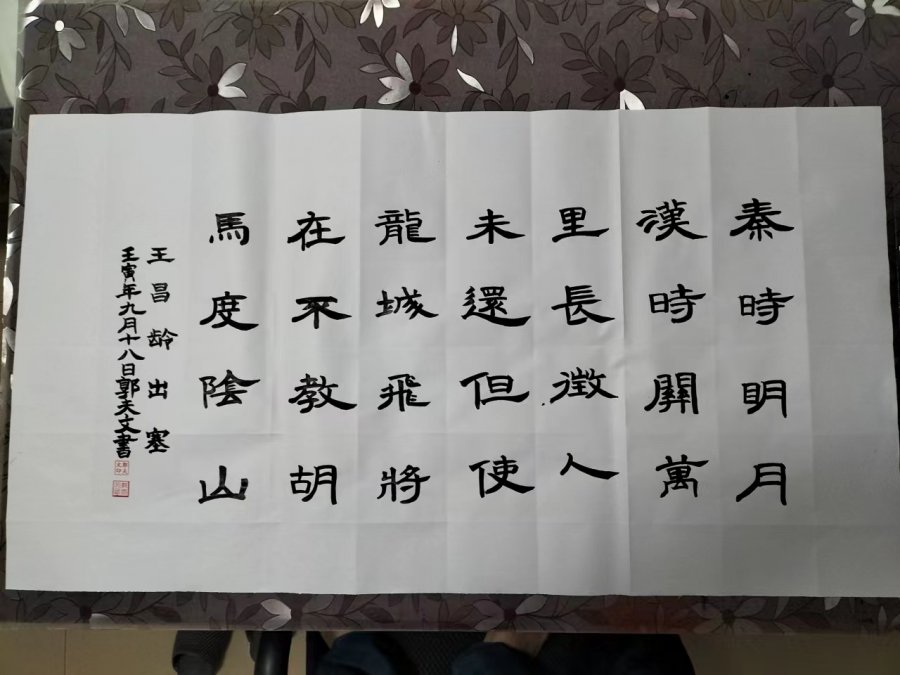 秦時明月
漢時關萬
里長徵人
未還但使
龍城飛將
在不教胡
馬度陰山
王昌龄出塞
壬寅年九月十八日郭天文書